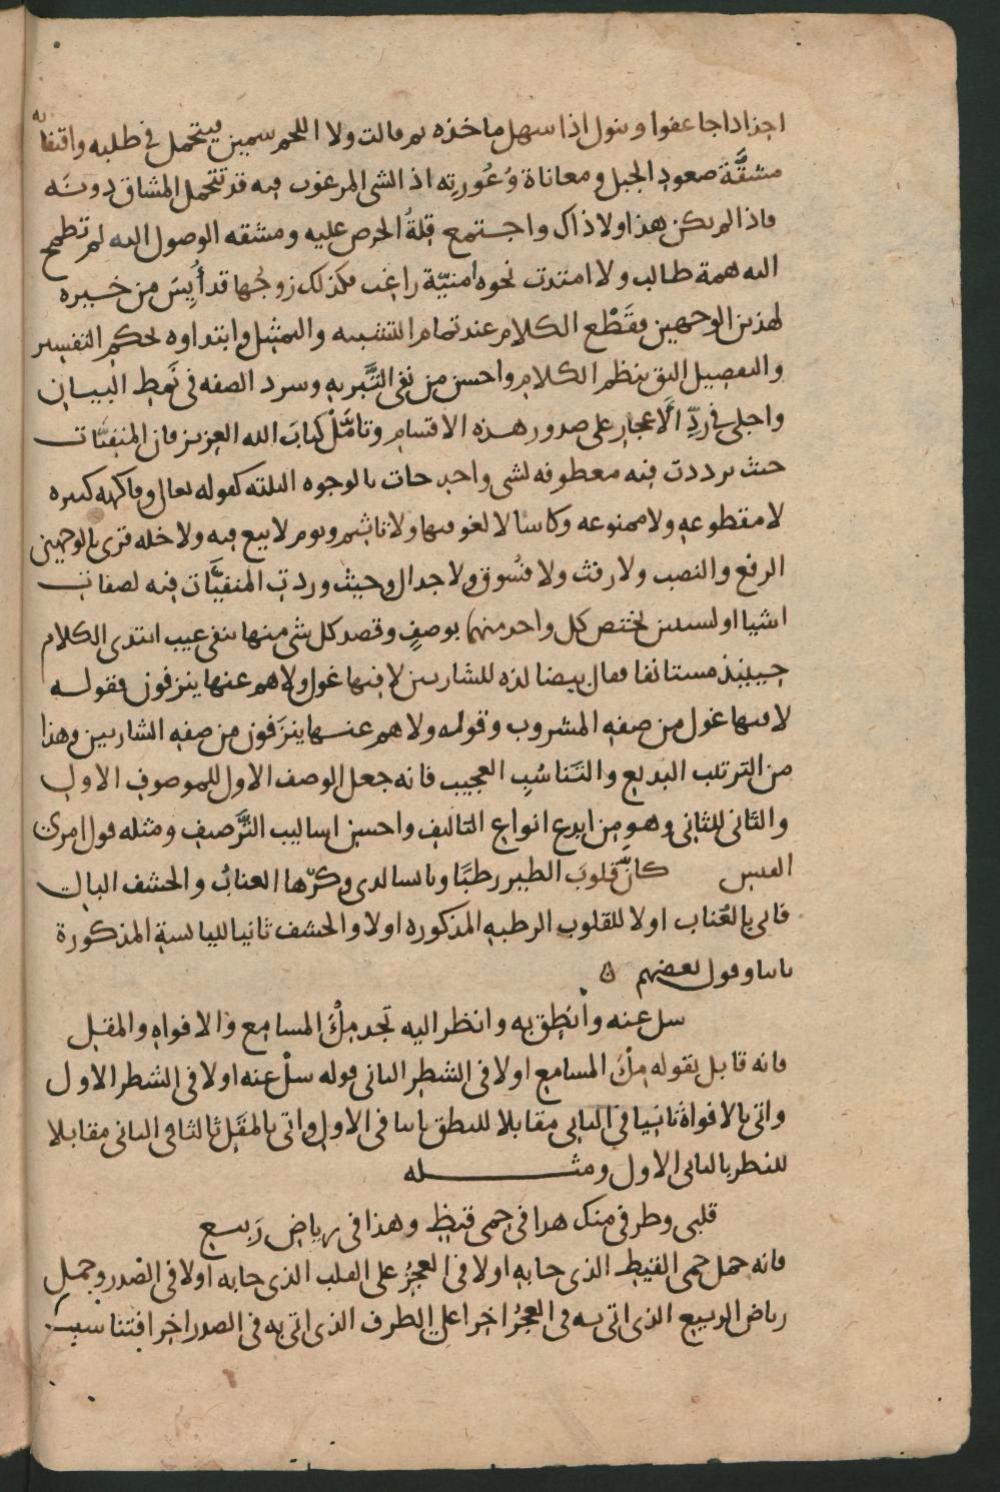 اجزا داجا عفوا وسول اذا سهل ماخذه ثم قالت ولا اللحم سمين فيتحمل في طلبه واقتفائه
مشقَّة صعود الجبل ومعاناة وُعُورته اذ الشى المرغوب فيه قد تتحمل المشاق دونَه
فاذا لم يكن هذا ولا ذاك واجتمع قِلةُ الحرص عليه ومشقه الوصول اليه لم تطمح
اليه همة طالب ولا امتدت نحوه امنيّة راغب فكذلك زوجُها قد أُيِسَ من خيره
لهذين الوجهين فقَطْع الكلام عند تمام التشبيه والتمثيل وابتداوه بحكم التفسير
والتفصيل اليق بنظم الكلام واحسن من نفى التَّبريه وسرد الصفه في نَمط البيان
واجلى في ردِّ الاَعجاز على صدور هذه الاقسام وتامَّلْ كتابَ الله العزيز فان المنفيَّات
حيث ترددت فيه معطوفه لشى واحد جات بالوجوه الثلثه كقوله تعالى وفاكهه كثيره
لا مقطوعهٍ ولا ممنوعه وكاسا لا لغو فيها ولا تاثيم ويوم لا بيع فيه ولا خله قرى بالوجهين
الرفع والنصب ولا رفث ولا فسُوق ولا جدال وحيث وردت المنفيَّات فيه لصفات
اشيا او لشيئين يختص كل واحد منهما بوصفٍ وقصد كل شى منها بنفى عيب ابتدى الكلام
حينئذ مستانفا فقال بيضا لذه للشاربين لا فيها غول ولا هم عنها ينزفون فقوله
لا فيها غول من صفه المشروب وقوله ولا هم عنها ينزَفون من صفه الشاربين وهذا
من الترتيب البديع والتَناسُبِ العجيب فانه جعل الوصف الاول للموصوف الاول
والثانى للثانى وهو من ابدع انواع التاليف واحسن اساليب التَّرصيف ومثله قول امرئ
القيس كانَّ قلوبَ الطير رطبًا ويابسا لدى وكرّها العنابُ والحشف البالى
فاتى بالعُناب اولا للقلوب الرطبه المذكوره اولا والحشف ثانيا لليابسة المذكورة
ثانيا وقول بعضهم ه
سل عنه وأنطِق به وانظر اليه تجد مِلْ المسامع والافواهِ والمقل
فانه قابل بقوله مِلْ المسامع اولا فى الشطر الثانى قوله سلْ عنه اولا فى الشطر الاول
واتى بالافواة ثانيا فى الثانى مقابلا للنطق ثانيا فى الاول واتى بالمقَل ثالثا فى الثانى مقابلا
للنظر بالثانى الاول ومثله
قلبى وطرفى منك هذا فى حِمى قيظٍ وهذا فى رياض رَبيع
فانه حمل حمى القيظ الذى جا به اولا فى العجُزُ على القلب الذى جا به اولا فى الصدر وحمل
رياض الربيع الذى اتى به فى العجُزُ اخرا على الطرف الذى اتى به فى الصدر اخرا فتناسبت